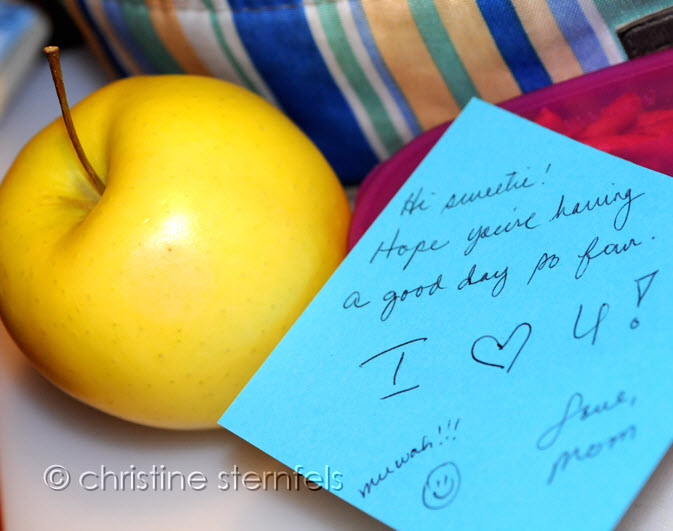 Hi sweetie!
Hope you're having
a good day so far.
I ♡ U!
muwah!!! Love,
☺ mom
© christine sternfels